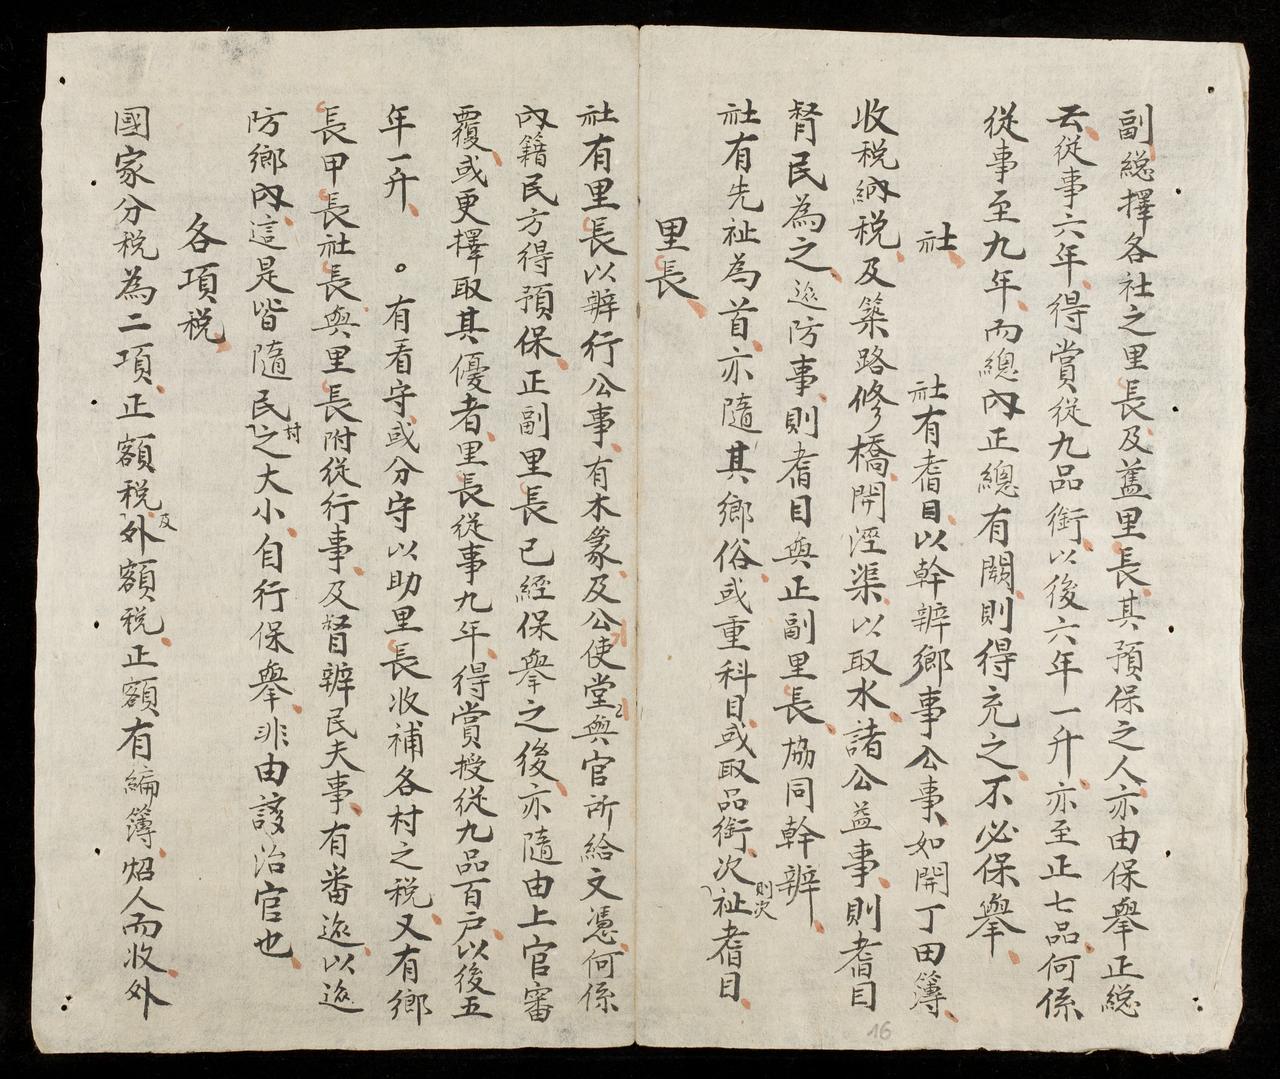 副総擇各社之里長及舊里長其預保之人亦由保舉正総
云從事六年得賞從九品銜以後六年一升亦至正七品何係
從事至九年而總内正總有闕則得充之不必保舉
社
社有耆目以幹辦鄉事公事如開丁田簿
收税納税及築路修橋開涇渠以取水諸公益事則耆目
督民為之巡防事則耆目與正副里長協同幹辦
社有先祉為首亦隨其鄉俗或重科目或取品銜次祉耆目
則次
里長
社有里長以辦行公事有木篆及公使堂與官所給文憑何係
内籍民方得預保正副里長已經保舉之後亦隨由上官審
覆或更擇取其優者里長從事九年得賞授從九品百户以後五
年一升 。有看守或分守以助里長收補各村之税又有鄉
長甲長社長與里長附從行事及督辦民夫事有番巡以巡
防鄉内這是皆隨民村之大小自行保舉非由該治官也
各項税
國家分税為二項正額税及外額税正額有編簿炤人而收外
16